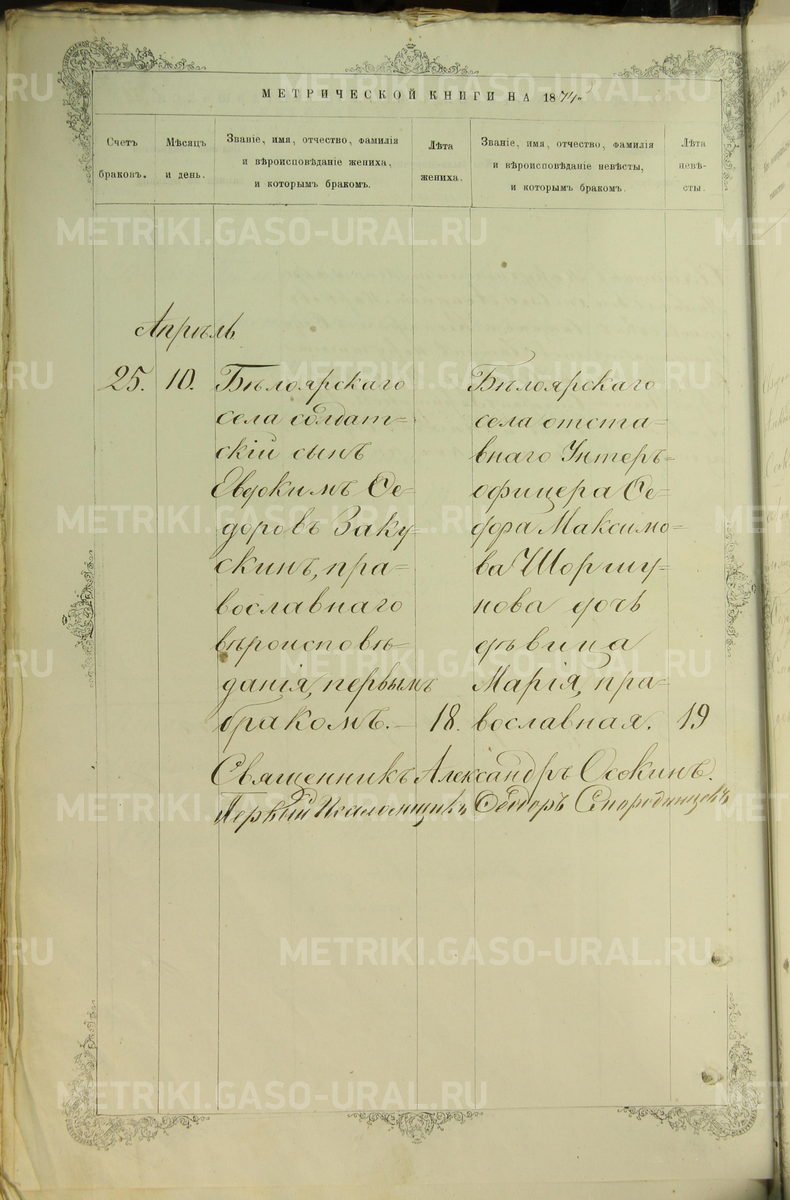 МЕТРИЧЕСКОЙ КНИГИ НА 1874.
Счетъ браковъ.
Мѣсяцъ и день.
Званіе, имя, отчество, фамилія
и вѣроисповѣданіе жениха,
и которымъ бракомъ.
Лѣта
жениха.
Званіе, имя, отчество, фамилія
и вѣроисповѣданіе невѣсты,
и которымъ бракомъ.
Лѣта
невѣ-
сты.
Апрѣль
25. 10.
Бѣлоярскаго
села солдат=
скій сынъ
Евдокимъ Ѳе=
доровъ Заку=
скинъ, пра=
вославнаго
вѣроисповѣ=
данія, первымъ
бракомъ. 18.
Бѣлоярскаго
села отста=
внаго Унтеръ=
офицера Ѳе=
дора Максимо=
ва Шоршу=
нова дочь
дѣвица
Марія, пра=
вославная. 19
Священникъ Александръ Осокинъ.
Первый Псаломщикъ Ѳедоръ
METRIKI.GASO-URAL.RU